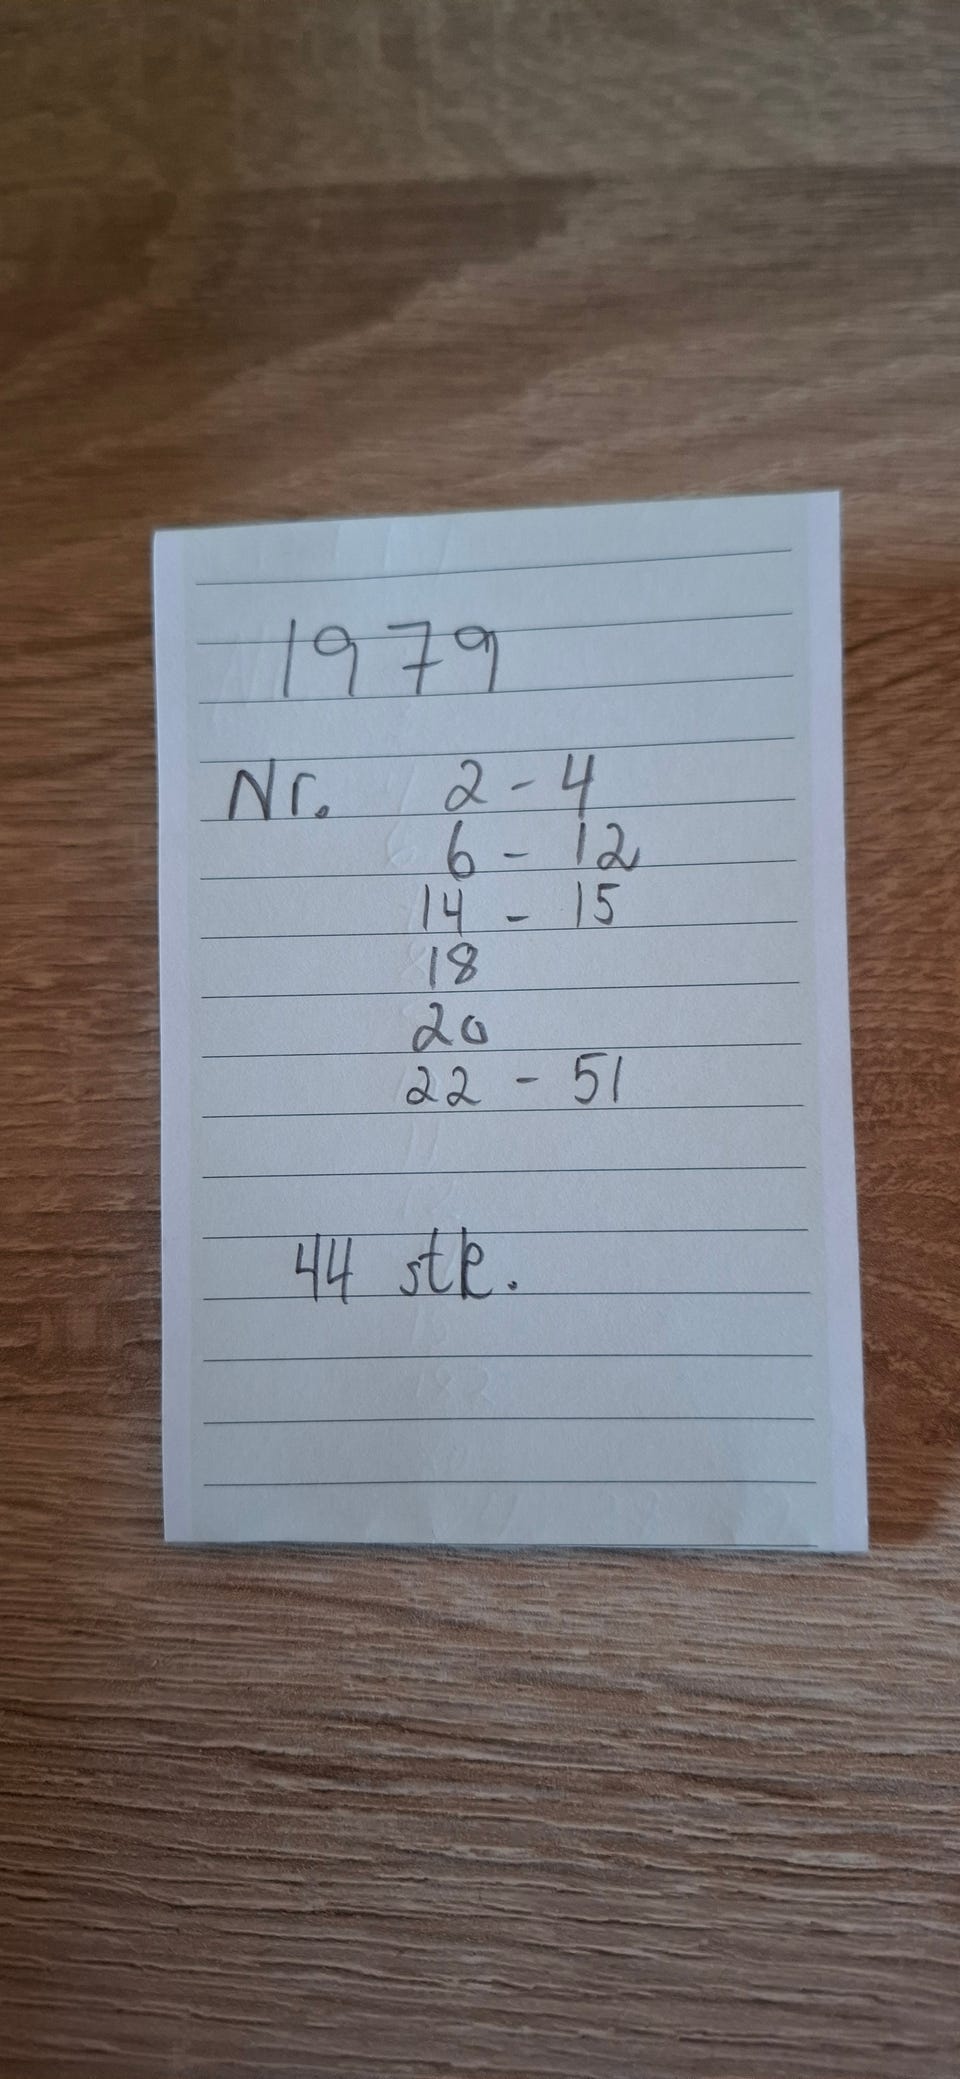 1979
Nr. 2 - 4
6 - 12
14 - 15
18
20
22 - 51
44 stk.